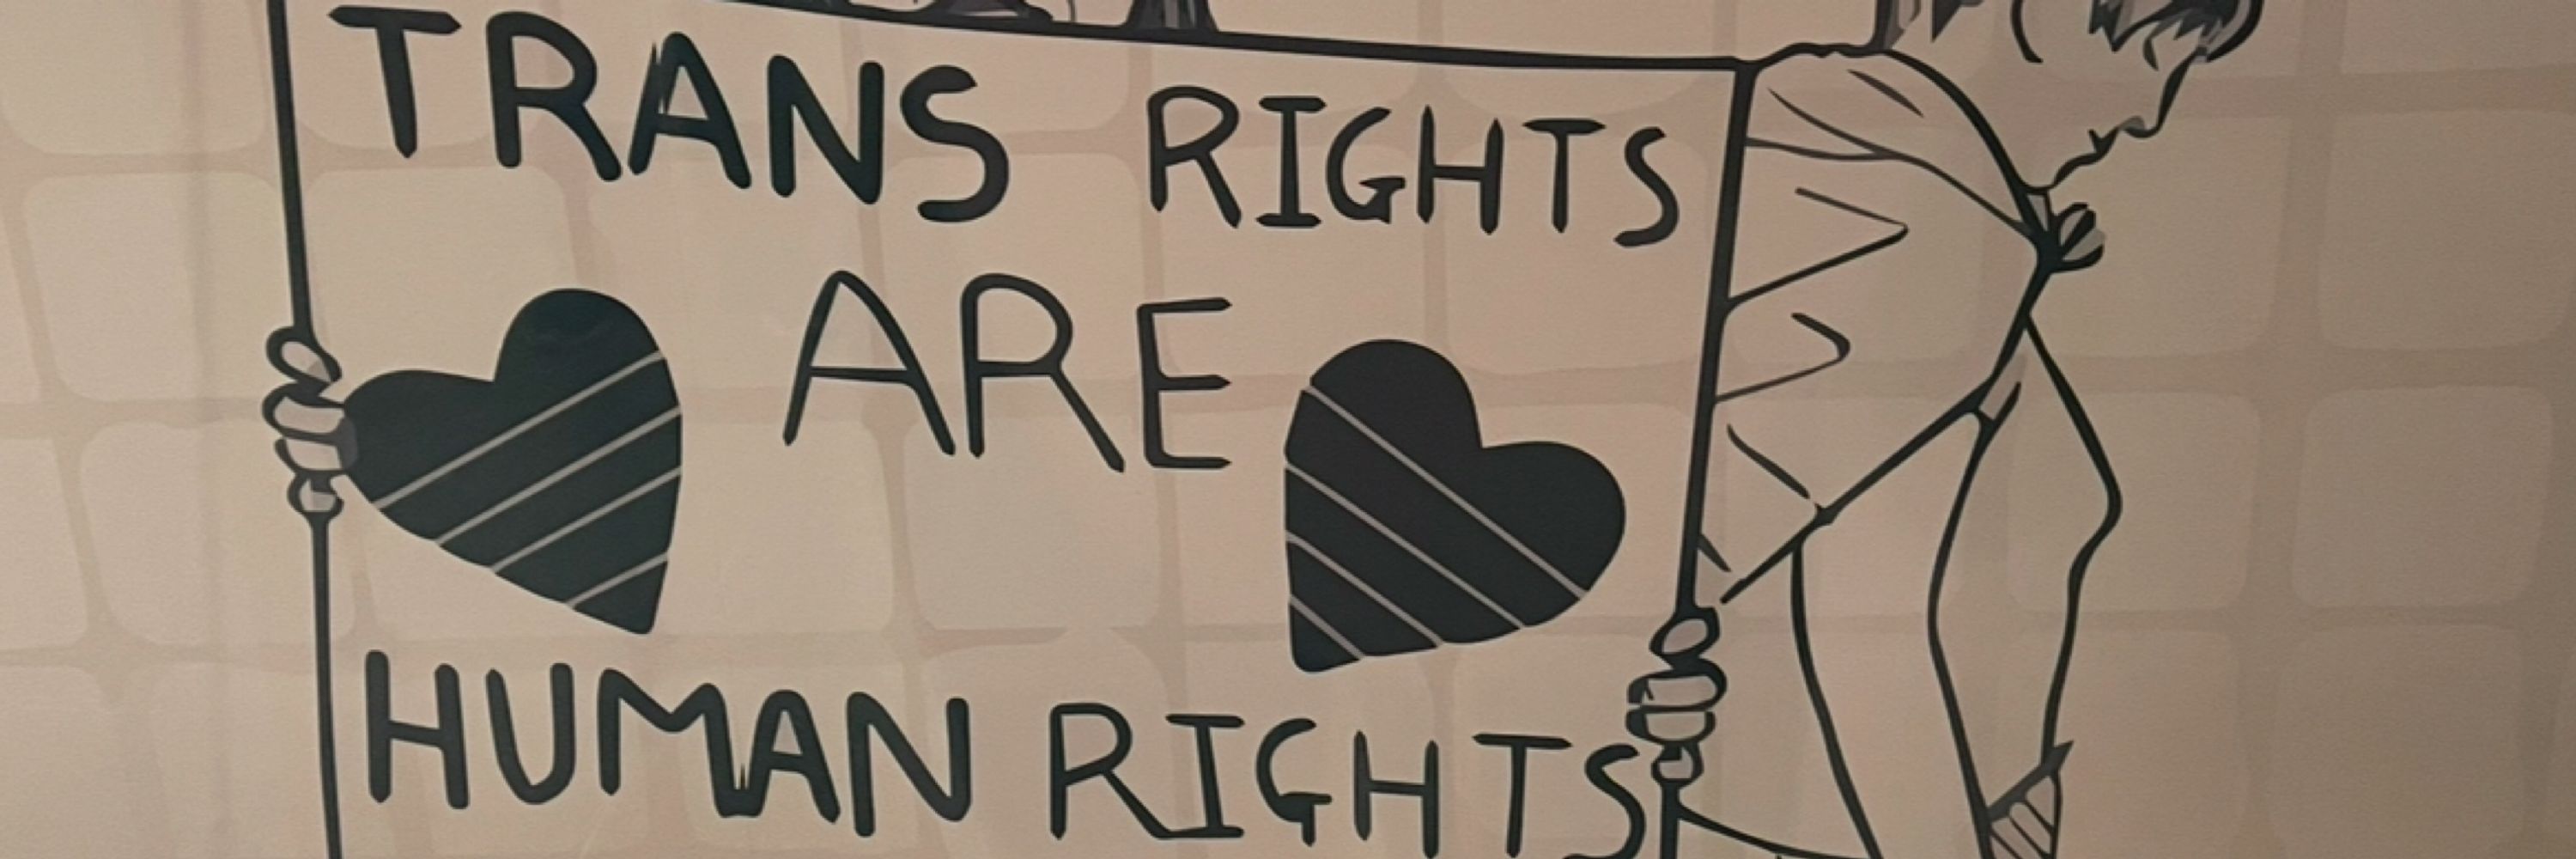 TRANS RIGHTS
ARE
HUMAN RIGHTS